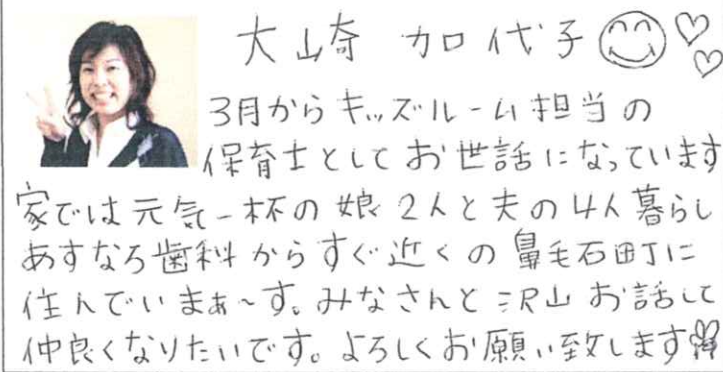 大山奇 加代子
3月からキッズルーム担当の
保育士としてお世話になっています
家では元気一杯の娘2人と夫の4人暮らし
あすなろ歯科からすぐ近くの鼻毛石町に
住んでいまぁ〜す。みなさんと沢山お話して
仲良くなりたいです。よろしくお願い致します